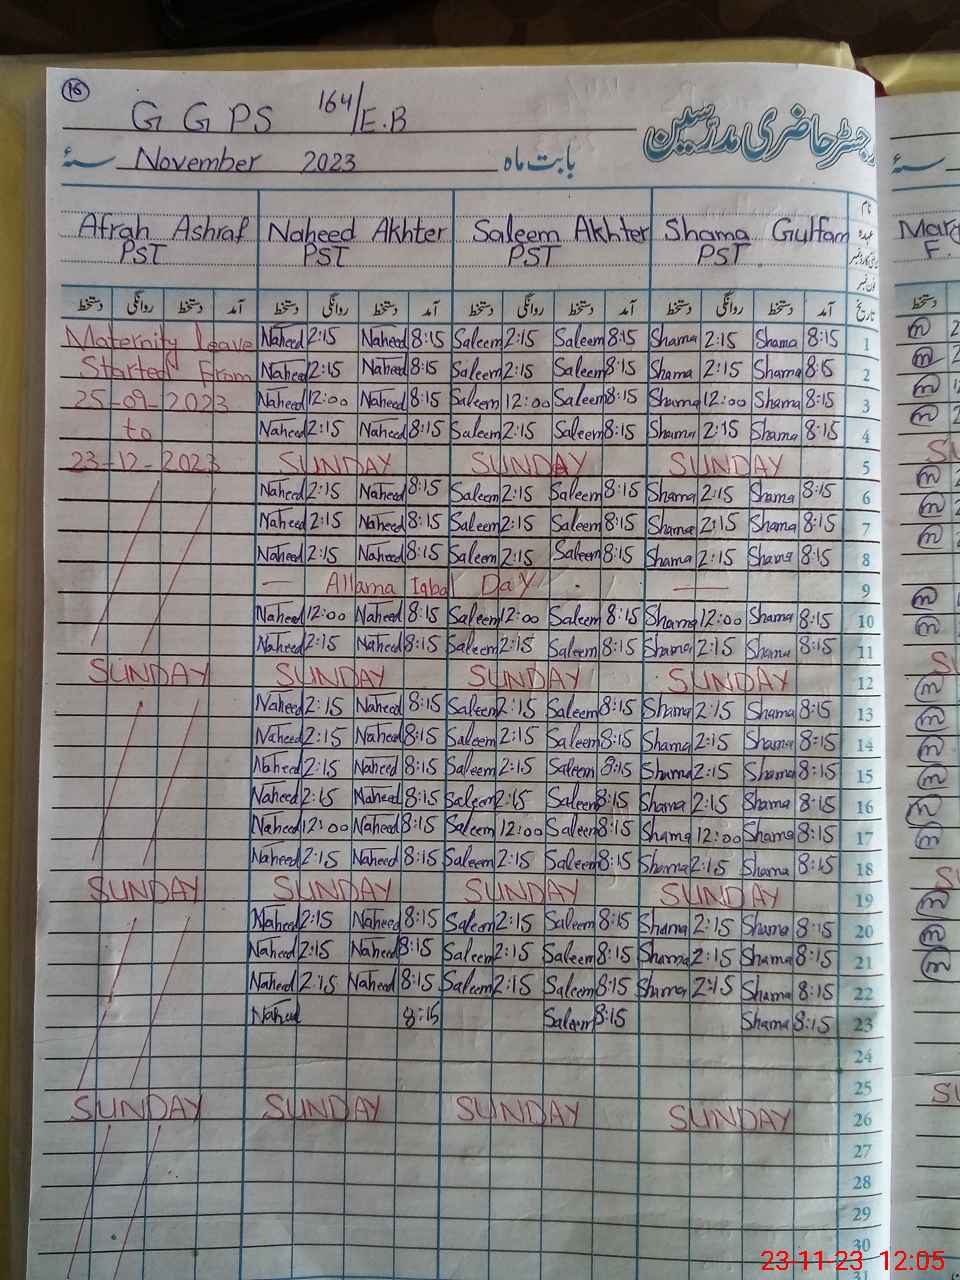 16
G G PS 164/E.B
رجسٹر حاضری مدرسین
November 2023 بابت ماہ
Afrah Ashraf Naheed Akhter Saleem Akhter Shama Gulfam نام
PST PST PST PST عہدہ
دستخط روانگی دستخط آمد دستخط روانگی دستخط آمد دستخط روانگی دستخط آمد دستخط روانگی دستخط آمد تاریخ
Maternity leave Naheed 2:15 Naheed 8:15 Saleem 2:15 Saleem 8:15 Shama 2:15 Shama 8:15 1
Started From Naheed 2:15 Naheed 8:15 Saleem 2:15 Saleem 8:15 Shama 2:15 Shama 8:15 2
25-09-2023 Naheed 12:00 Naheed 8:15 Saleem 12:00 Saleem 8:15 Shama 12:00 Shama 8:15 3
to Naheed 2:15 Naheed 8:15 Saleem 2:15 Saleem 8:15 Shama 2:15 Shama 8:15 4
23-12-2023 SUNDAY SUNDAY SUNDAY 5
Naheed 2:15 Naheed 8:15 Saleem 2:15 Saleem 8:15 Shama 2:15 Shama 8:15 6
Naheed 2:15 Naheed 8:15 Saleem 2:15 Saleem 8:15 Shama 2:15 Shama 8:15 7
Naheed 2:15 Naheed 8:15 Saleem 2:15 Saleem 8:15 Shama 2:15 Shama 8:15 8
Allama Iqbal Day 9
Naheed 12:00 Naheed 8:15 Saleem 12:00 Saleem 8:15 Shama 12:00 Shama 8:15 10
Naheed 2:15 Naheed 8:15 Saleem 2:15 Saleem 8:15 Shama 2:15 Shama 8:15 11
SUNDAY SUNDAY SUNDAY SUNDAY 12
Naheed 2:15 Naheed 8:15 Saleem 2:15 Saleem 8:15 Shama 2:15 Shama 8:15 13
Naheed 2:15 Naheed 8:15 Saleem 2:15 Saleem 8:15 Shama 2:15 Shama 8:15 14
Naheed 2:15 Naheed 8:15 Saleem 2:15 Saleem 8:15 Shama 2:15 Shama 8:15 15
Naheed 2:15 Naheed 8:15 Saleem 2:15 Saleem 8:15 Shama 2:15 Shama 8:15 16
Naheed 12:00 Naheed 8:15 Saleem 12:00 Saleem 8:15 Shama 12:00 Shama 8:15 17
Naheed 2:15 Naheed 8:15 Saleem 2:15 Saleem 8:15 Shama 2:15 Shama 8:15 18
SUNDAY SUNDAY SUNDAY SUNDAY 19
Naheed 2:15 Naheed 8:15 Saleem 2:15 Saleem 8:15 Shama 2:15 Shama 8:15 20
Naheed 2:15 Naheed 8:15 Saleem 2:15 Saleem 8:15 Shama 2:15 Shama 8:15 21
Naheed 2:15 Naheed 8:15 Saleem 2:15 Saleem 8:15 Shama 2:15 Shama 8:15 22
Naheed 8:15 Saleem 8:15 Shama 8:15 23
24
25
SUNDAY SUNDAY SUNDAY SUNDAY 26
27
28
29
30
31
23-11-23 12:05